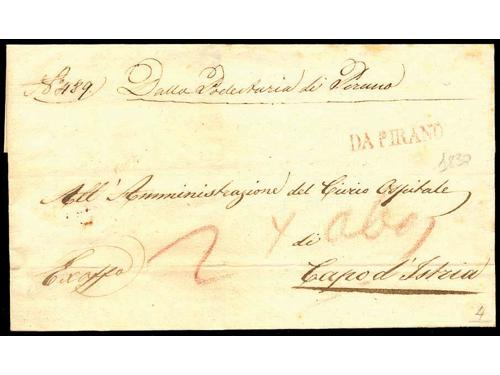 No 489 Dalla Podestaria di Pirano
DA PIRANO
1832
All' Amministrazione del Civico Ospitale
di
Exoffo
Capo d'Istria
4